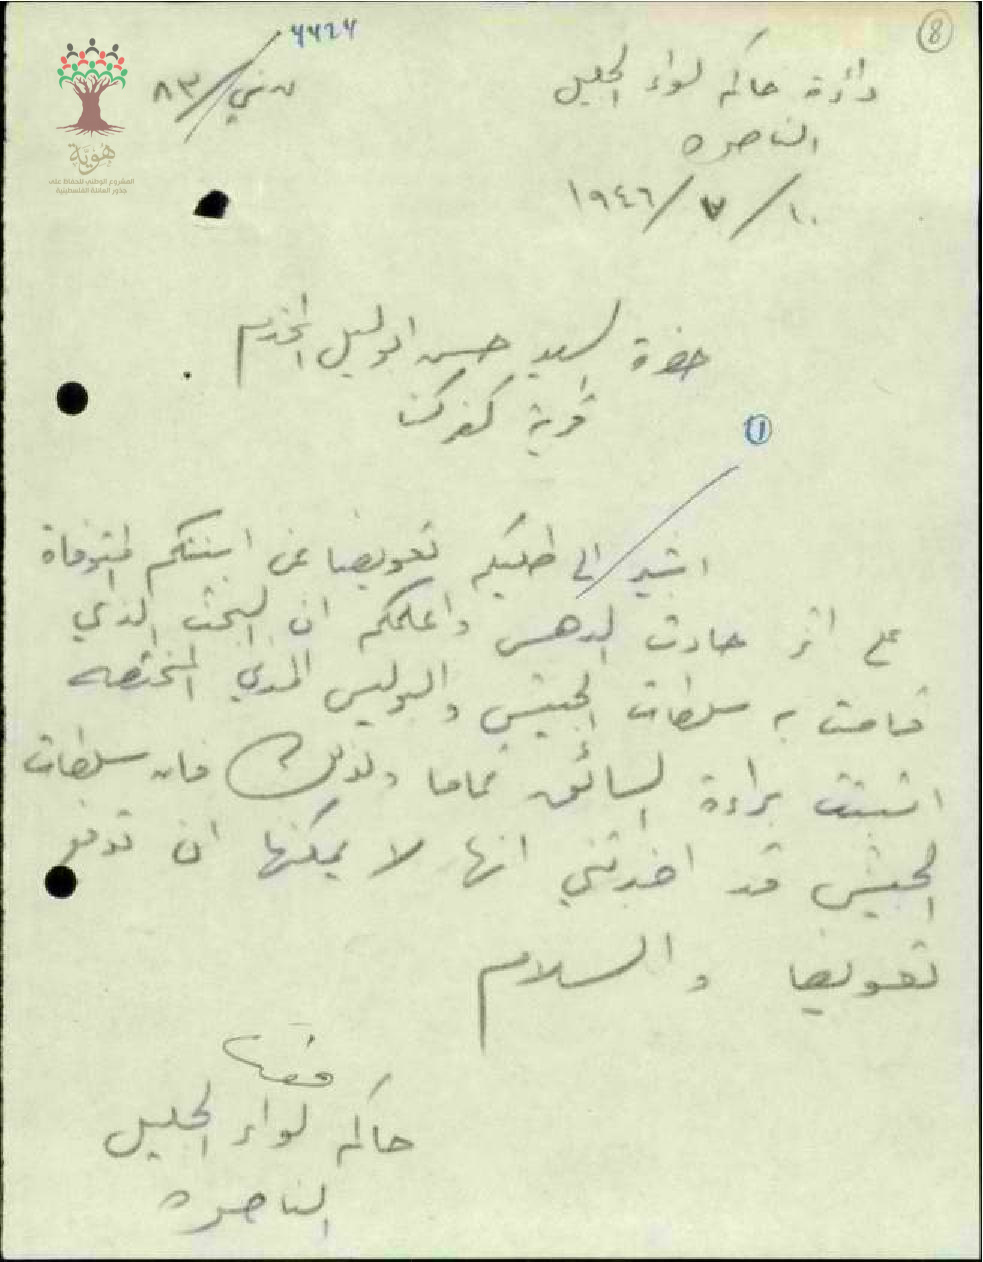 8
4424
دائرة حاكم لواء الجليل
ن ني/٨٣
الناصره
١٠/٧/١٩٤٦
هُوِيَّة
المشروع الوطني للحفاظ على
جذور العائلة الفلسطينية
حضرة السيد حسن ابو ليل المحترم
قرية كفركنا
1
اشير الى طلبكم تعويضا عن ابنتكم المتوفاة
على اثر حادث الدهس واعلمكم ان البحث الذي
قامت به سلطات الجيش والبوليس المدني المختصه
اثبتت براءة السائق تماما ولذلك فان سلطات
الجيش قد اخبرتني انها لا يمكنها ان تدفع
تعويضا والسلام
حاكم لواء الجليل
الناصره